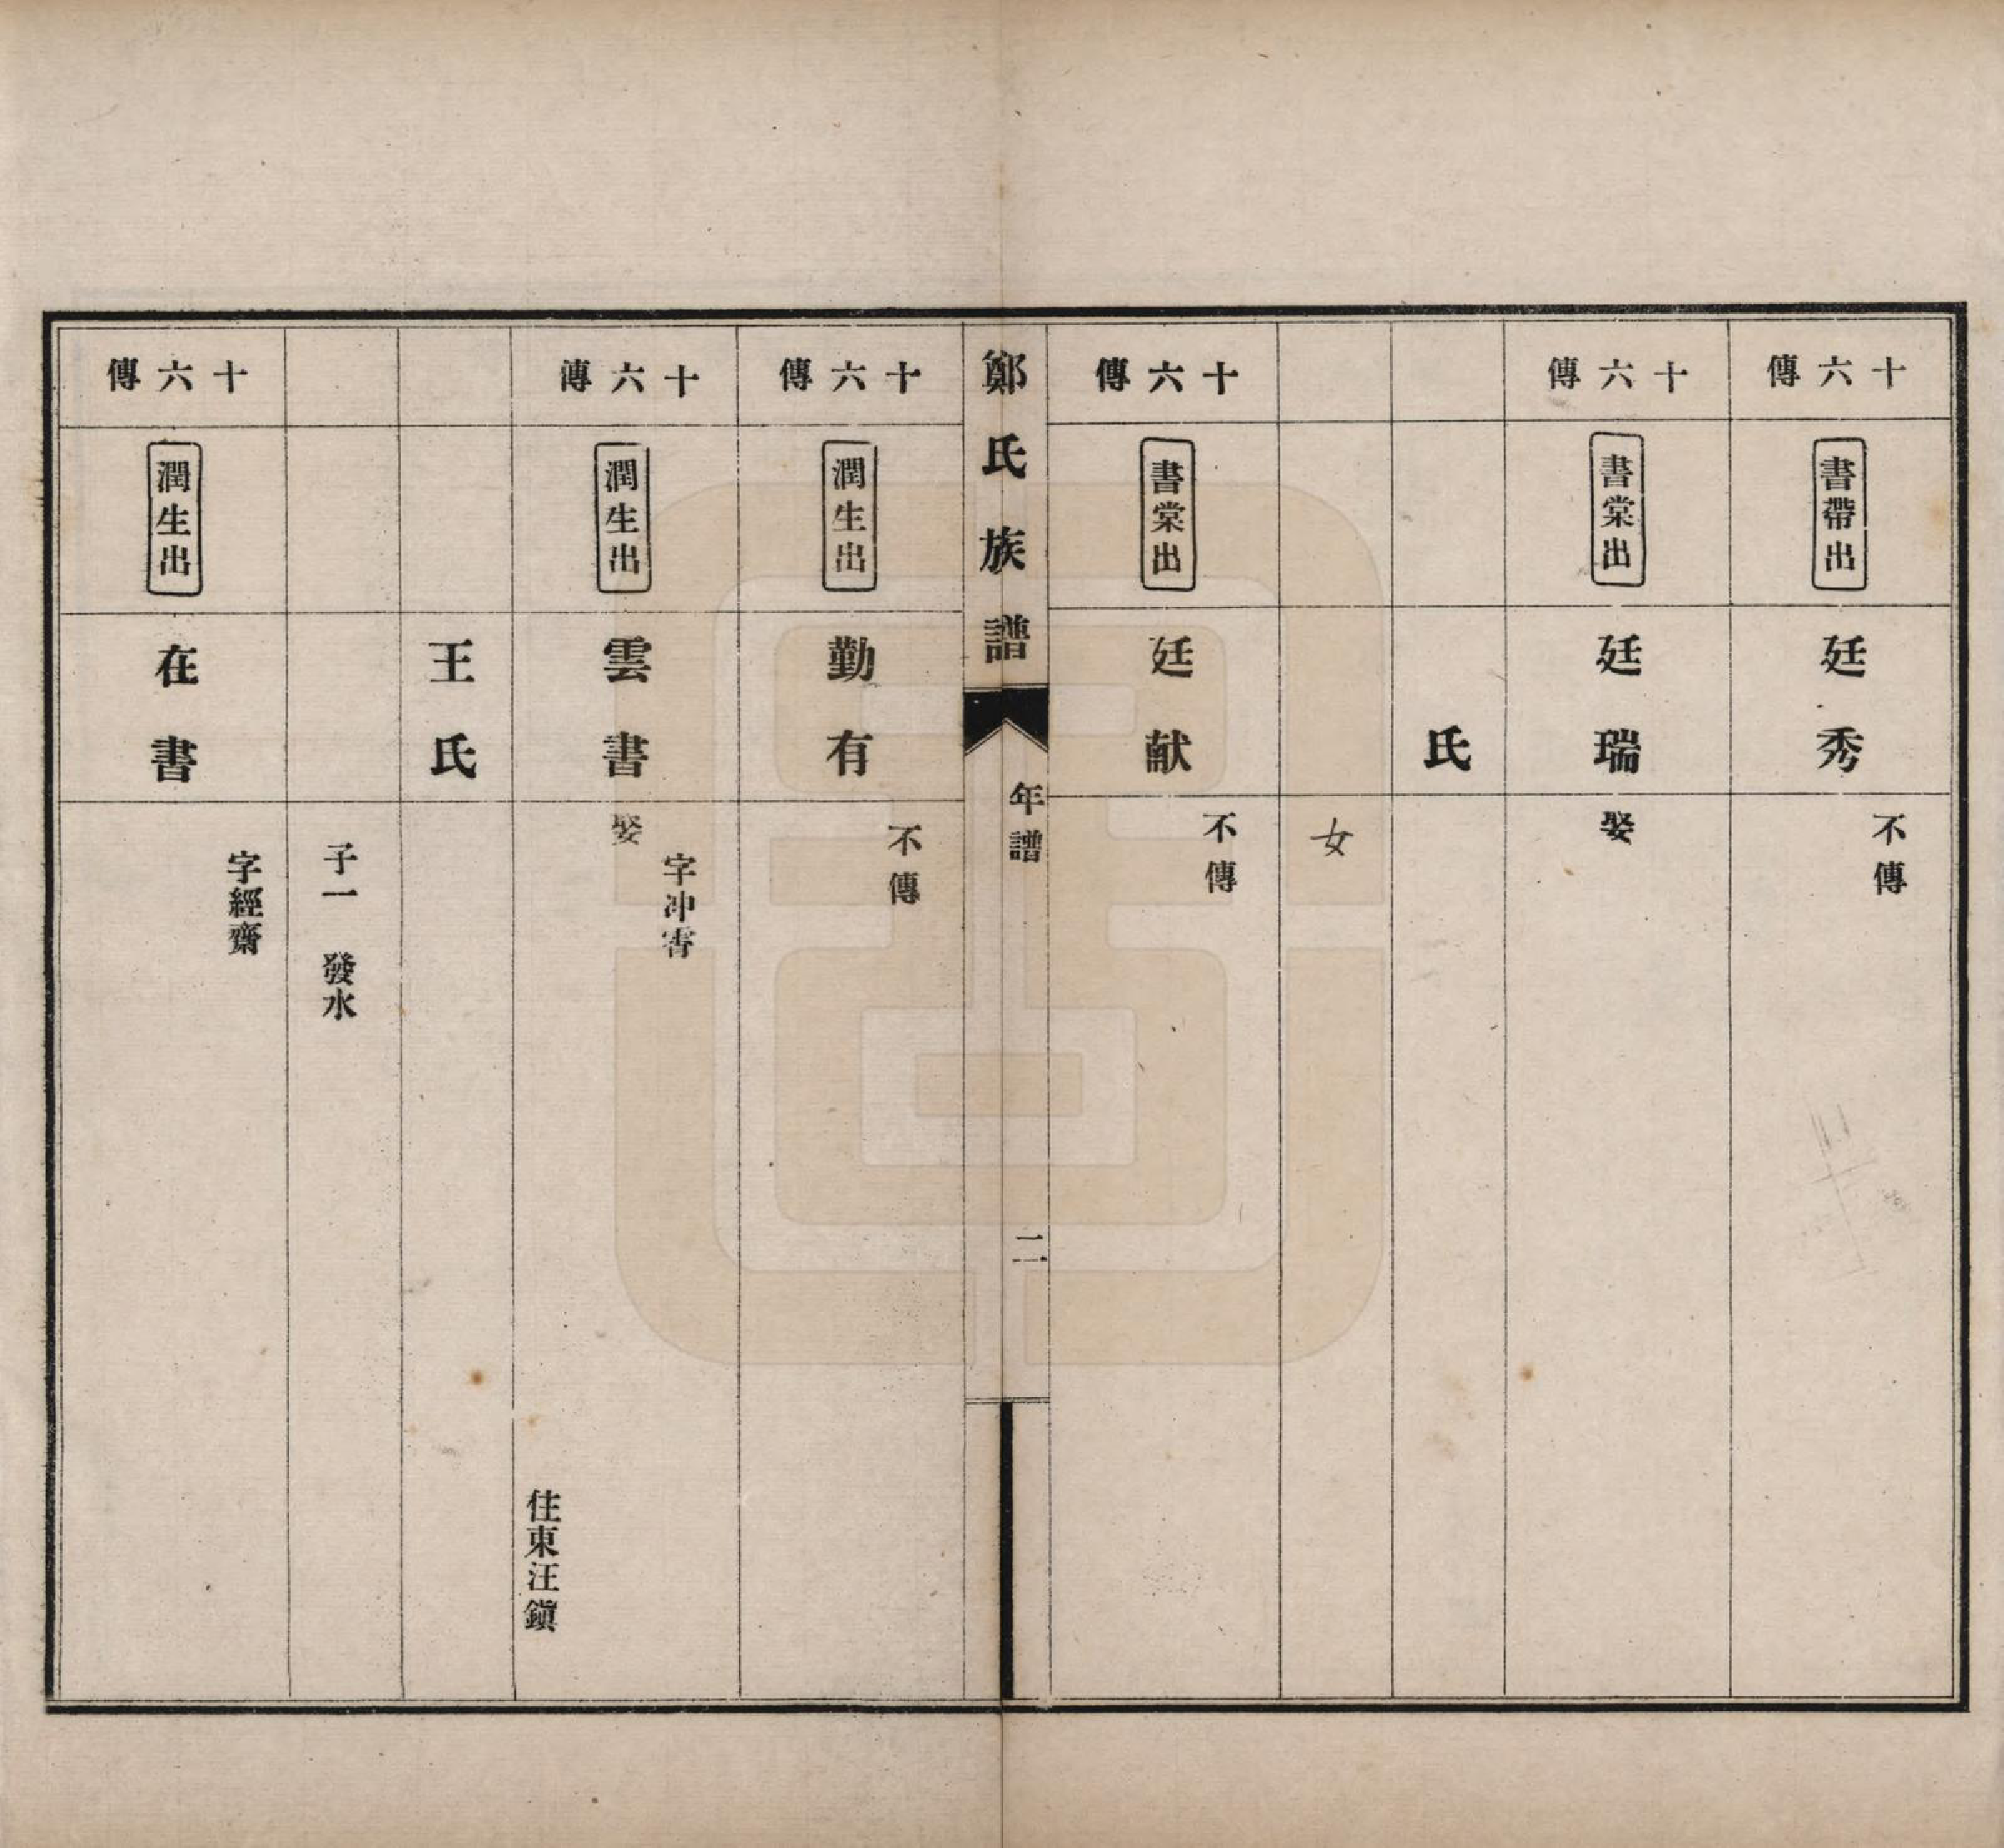 十六傳
書帶出
廷秀
不傳
十六傳
書棠出
廷瑞
娶
氏
女
十六傳
書棠出
廷献
不傳
鄭氏族譜
年譜
二
十六傳
潤生出
勤有
不傳
十六傳
潤生出
雲書
字冲霄
娶
住東汪鎭
王氏
子一 發水
十六傳
潤生出
在書
字經齋